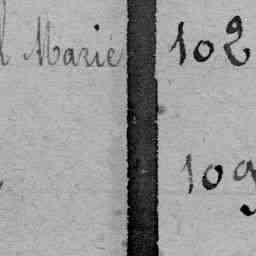 Marie 102
109